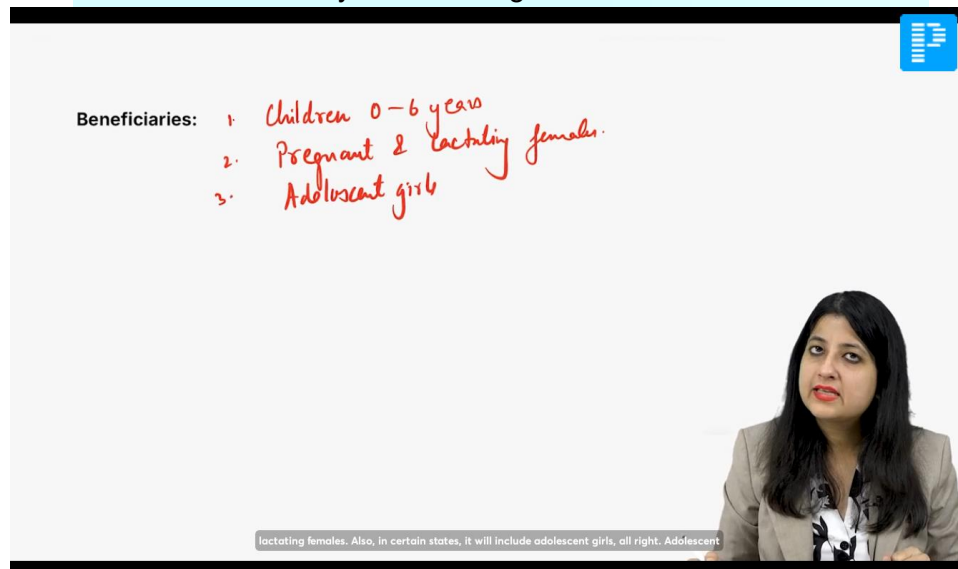 Beneficiaries: 1. Children 0-6 years
2. Pregnant & Lactating females.
3. Adolescent girls
lactating females. Also, in certain states, it will include adolescent girls, all right. Adolescent